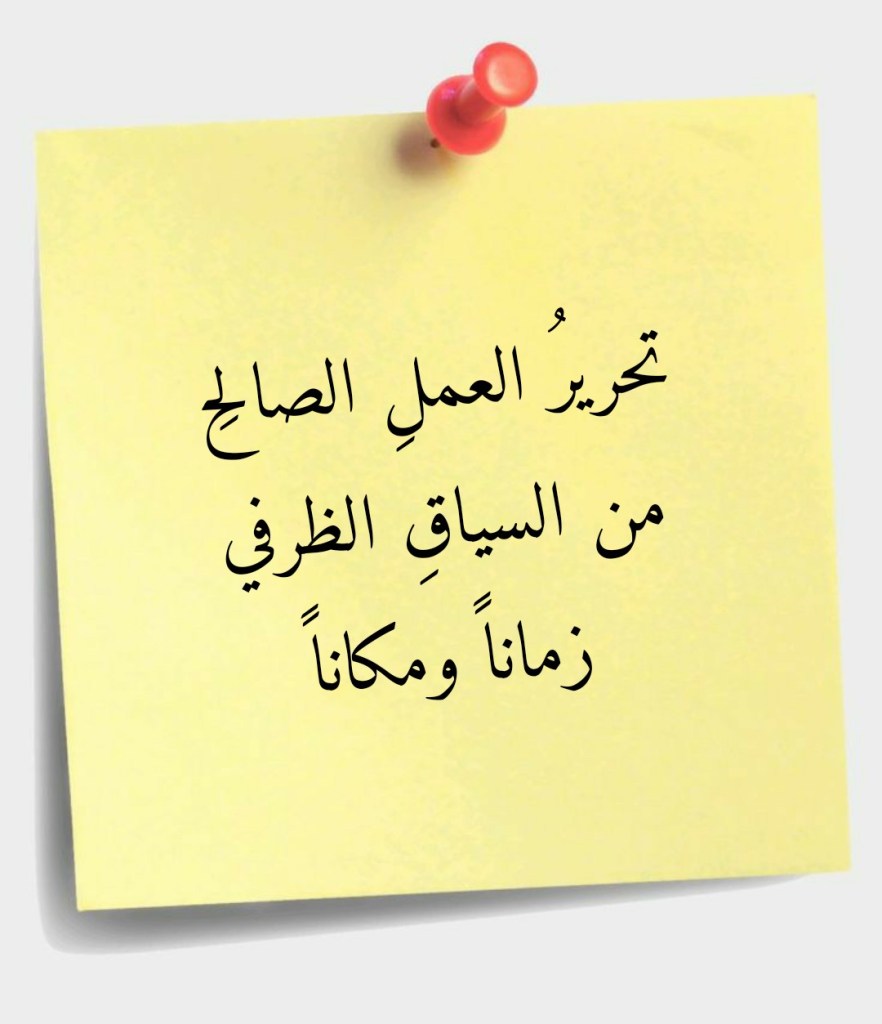 تحريرُ العملِ الصالحِ
من السياقِ الظرفي
زماناً ومكاناً